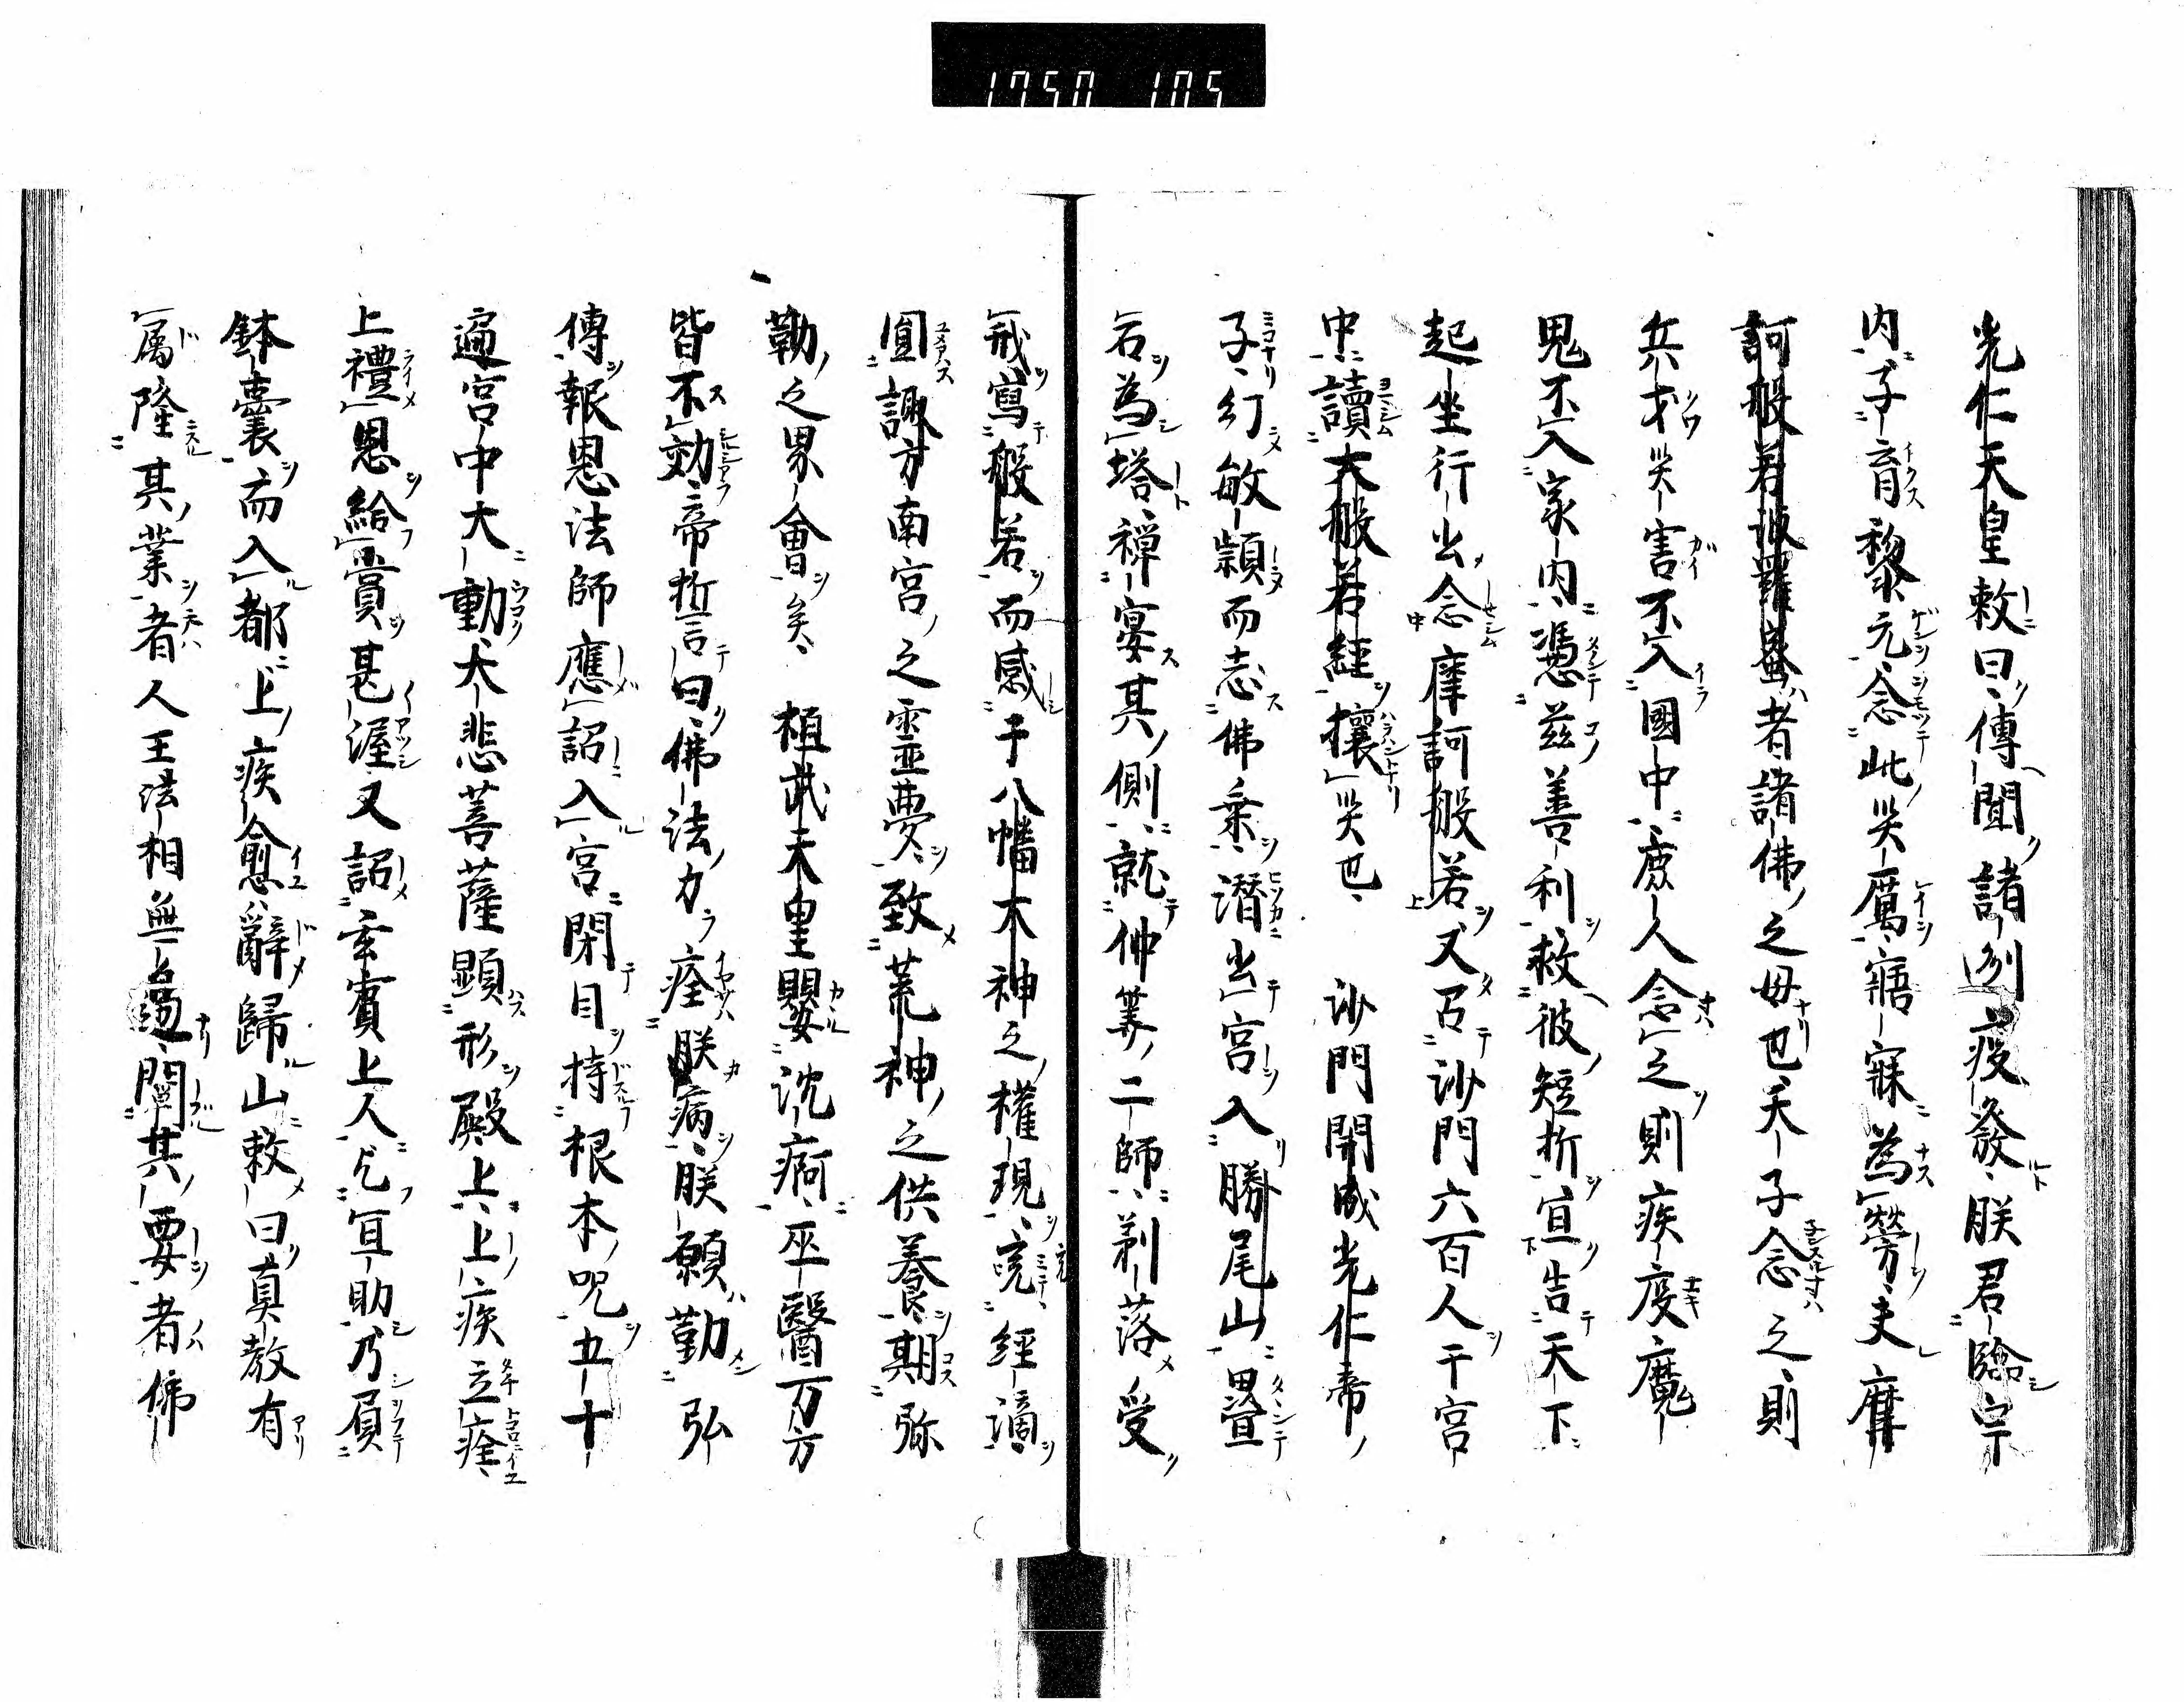 1750 105
光仁天皇敕曰傳聞諸例疫發朕君臨宗
内子育黎元念此災厲寤寐為勞夫摩
訶般若波羅蜜者諸佛之母也天子念之則
兵才災害不入國中庶人念之則疾疫魔
鬼不入家内憑茲善利救彼短折宣告天下
起坐行出念摩訶般若又召沙門六百人于宮
中讀大般若經攘災也　沙門開成光仁帝
子幻敏穎而志佛乗潛出宮入勝尾山疊
石為塔禪宴其側就仲筭二師剃落受
戒寫般若而感于八幡大神之權現兗經滴
圓諏方南宮之靈夢致荒神之供養期弥
勒之界會矣　桓武天皇嬰沈痾巫醫万方
皆不効帝誓曰佛法力痊朕病朕願勤弘
傳報恩法師應詔入宮閇目持根本呪五十
遍宮中大動大悲菩薩顯形殿上上疾立痊
上禮恩給賞甚渥又詔玄賓上人乞冝助乃屓
鉢囊而入都上疾愈辭歸山敕曰真教有
属隆其業者人王法相無過闡其要者佛